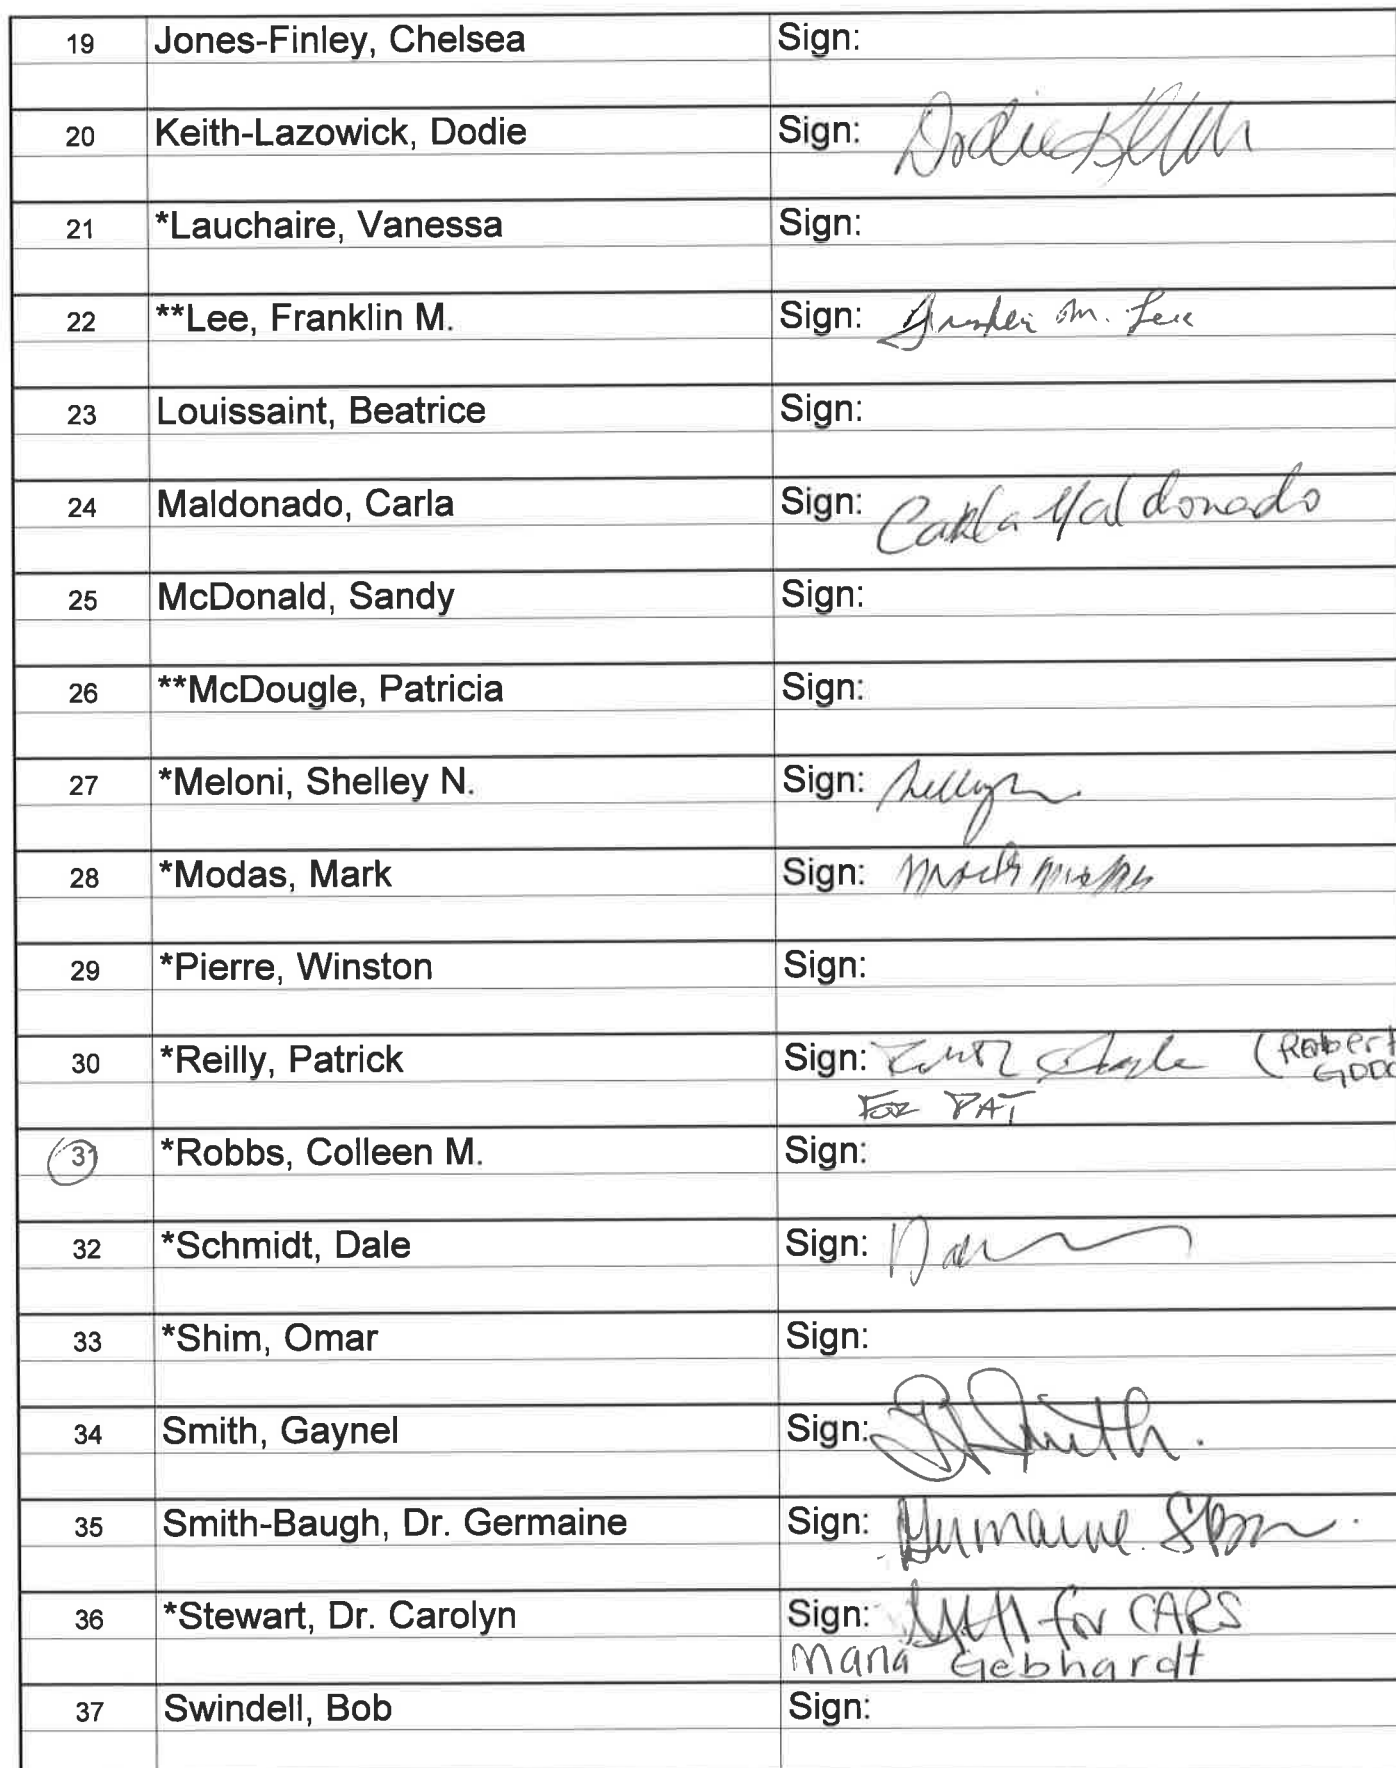 19 Jones-Finley, Chelsea Sign:
20 Keith-Lazowick, Dodie Sign: Dodie
21 *Lauchaire, Vanessa Sign:
22 **Lee, Franklin M. Sign: M. Lee
23 Louissaint, Beatrice Sign:
24 Maldonado, Carla Sign: Carla Maldonado
25 McDonald, Sandy Sign:
26 **McDougle, Patricia Sign:
27 *Meloni, Shelley N. Sign:
28 *Modas, Mark Sign:
29 *Pierre, Winston Sign:
30 *Reilly, Patrick Sign: (Robert
GODD
FOR PAT
31 *Robbs, Colleen M. Sign:
32 *Schmidt, Dale Sign:
33 *Shim, Omar Sign:
34 Smith, Gaynel Sign: Smith.
35 Smith-Baugh, Dr. Germaine Sign: Germaine
36 *Stewart, Dr. Carolyn Sign: for CARS
Maria Gebhardt
37 Swindell, Bob Sign: